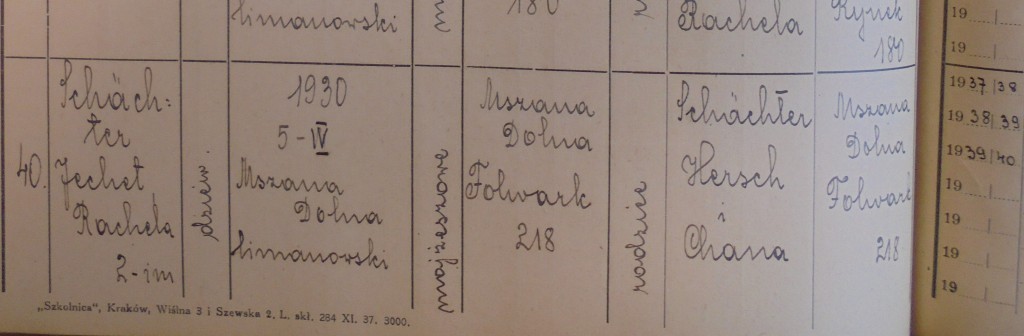 limanowski
180
Rachela
Rynek
180
40.
Schäch:
ter
Jechet
Rachela
2-im
dziew.
1930
5-IV
Mszana
Dolna
limanowski
mojżeszowe
Mszana
Dolna
Folwark
218
rodzice
Schächter
Hersch
i
Chana
Mszana
Dolna
Folwark
218
„Szkolnica", Kraków, Wiślna 3 i Szewska 2, L. skł. 284 XI. 37. 3000.
19
19
1937/38
1938/39
1939/40
19
19
19
19